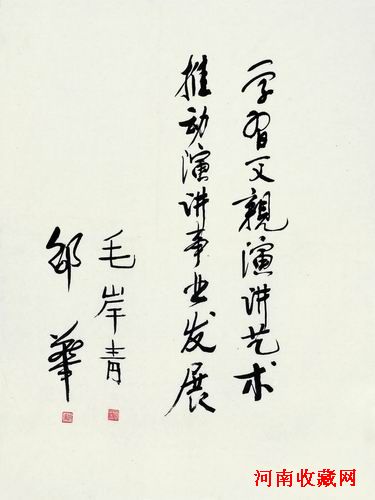 学习父親演讲艺术
推动演讲事业发展
毛岸青
邵華
河南收藏网